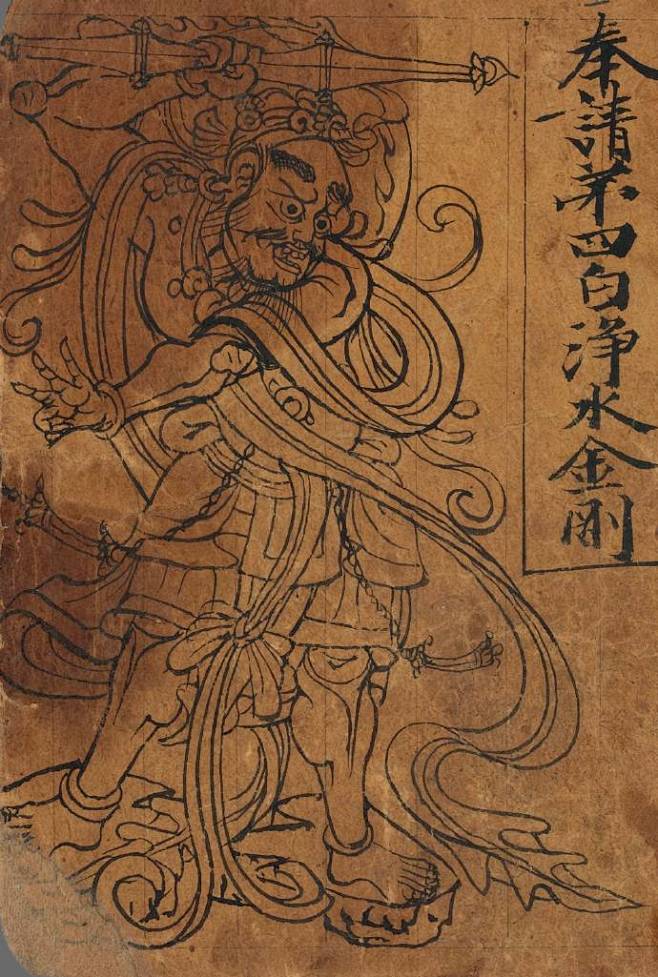 奉請苐四白淨水金剛